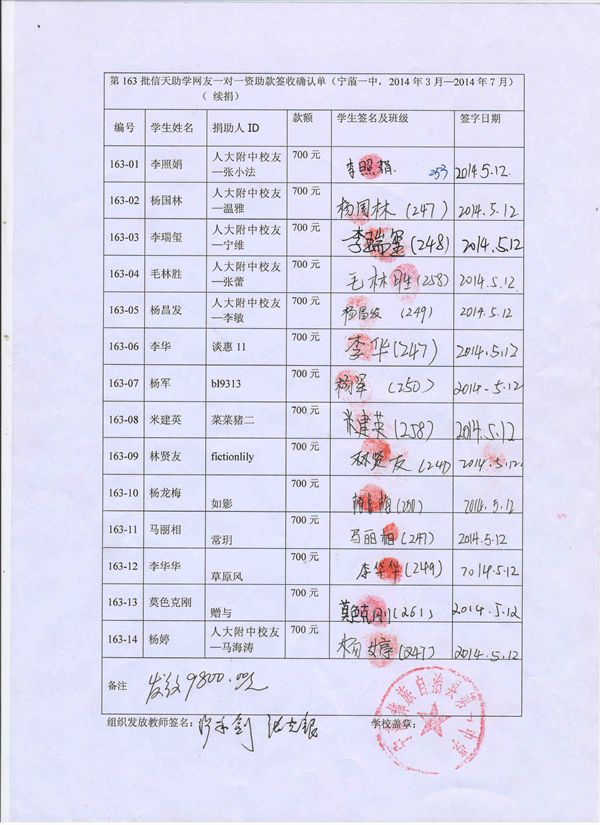 第 163 批信天助学网友一对一资助款签收确认单（宁蒗一中，2014 年 3 月—2014 年 7 月）
（ 续捐）
编号 学生姓名 捐助人 ID 款额 学生签名及班级 签字日期
163-01 李照娟 人大附中校友—张小法 700 元 李照娟 253 2014.5.12
163-02 杨国林 人大附中校友—温雅 700 元 杨国林 (247) 2014.5.12
163-03 李瑞玺 人大附中校友—宁维 700 元 李瑞玺 (248) 2014.5.12
163-04 毛林胜 人大附中校友—张蕾 700 元 毛林胜 (258) 2014.5.12
163-05 杨昌发 人大附中校友—李敏 700 元 杨昌发 (249) 2014.5.12
163-06 李华 谈惠 11 700 元 李华 (247) 2014.5.12
163-07 杨军 bl9313 700 元 杨军 (250) 2014.5.12
163-08 米建英 菜菜猪二 700 元 米建英 (258) 2014.5.12
163-09 林贤友 fictionlily 700 元 林贤友 (247) 2014.5.12
163-10 杨龙梅 如影 700 元 杨龙梅 2014.5.12
163-11 马丽相 常玥 700 元 马丽相 (247) 2014.5.12
163-12 李华华 草原风 700 元 李华华 (249) 2014.5.12
163-13 莫色克刚 赠与 700 元 莫色克刚 (261) 2014.5.12
163-14 杨婷 人大附中校友—马海涛 700 元 杨婷 (247) 2014.5.12
备注 发放9800.00元
组织发放教师签名： 学校盖章：
彝族自治县第一中学